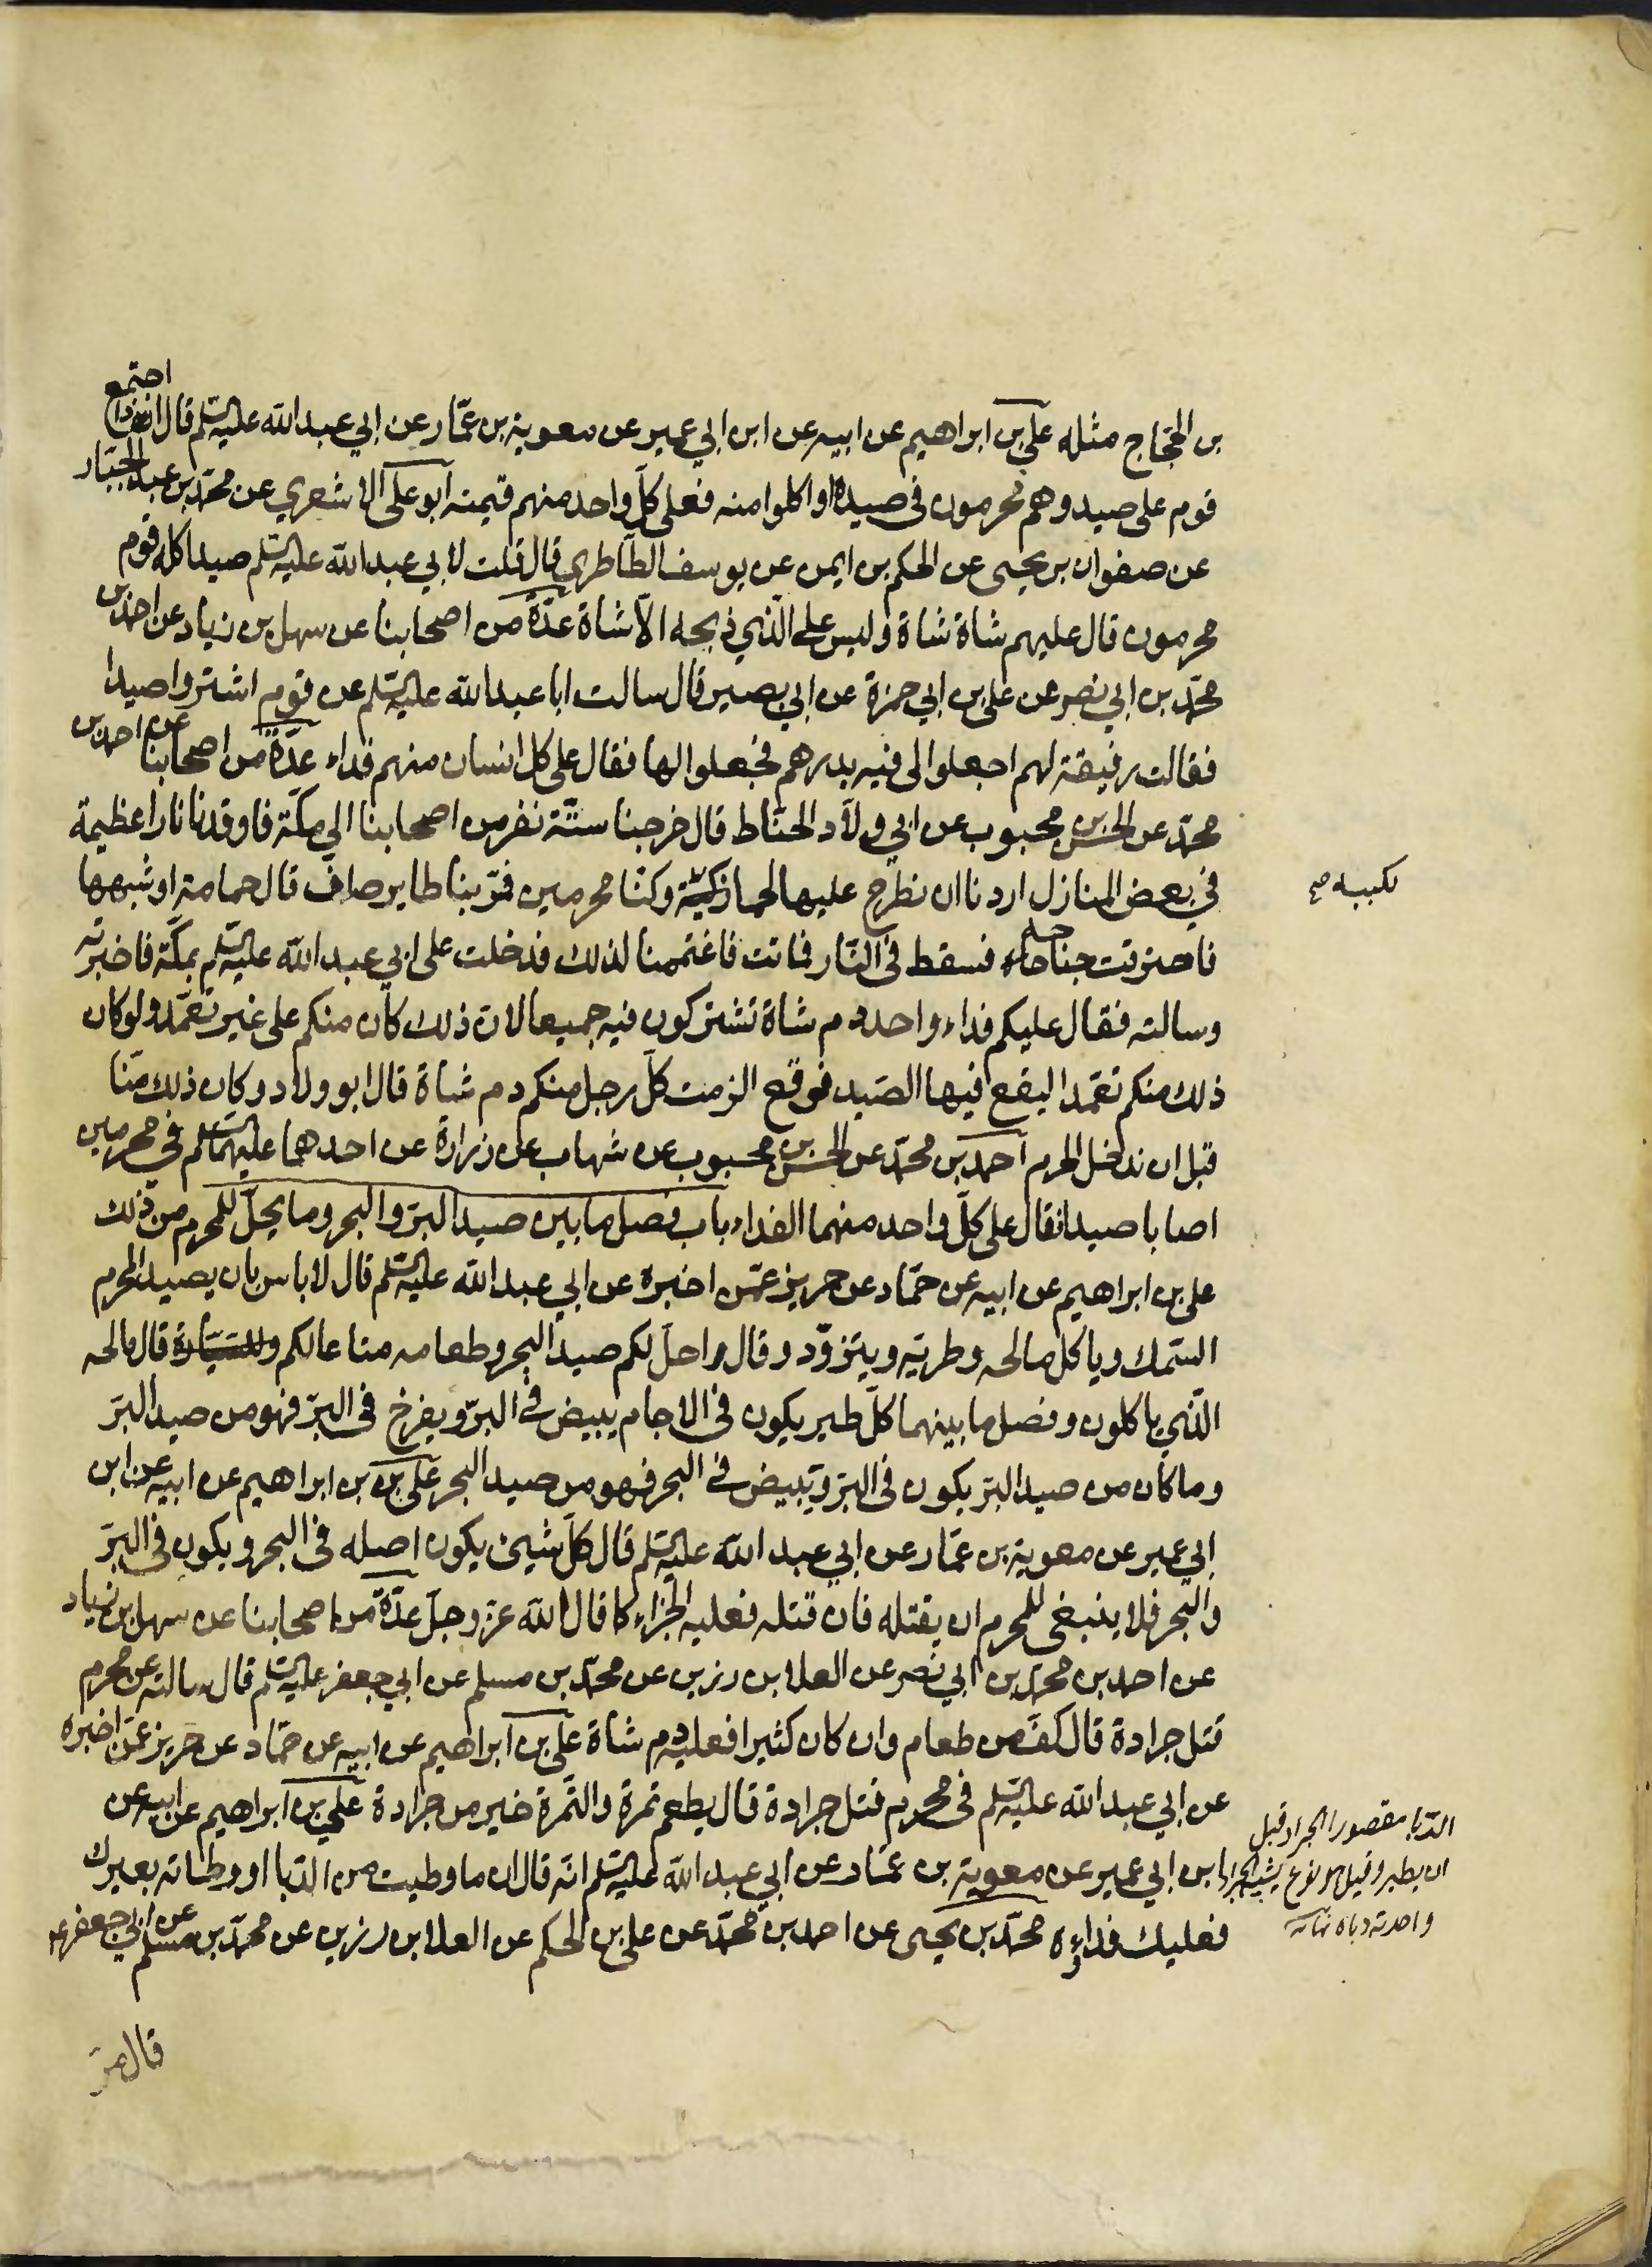 بن الحجاج مثله علي بن ابراهيم عن ابيه عن ابن ابي عمير عن معوية بن عمّار عن ابي عبدالله عليه السلم قال اذا اجتمع
قوم على صيد وهم محرمون فى صيده او اكلوا منه فعلى كلّ واحد منهم قيمته ابو على الاشعري عن محمّد بن عبد الجبّار
عن صفوان بن يحيى عن الحكم بن ايمن عن يوسف الطّاطري قال قلت لابي عبدالله عليه السلم صيد اكله قوم
محرمون قال عليهم شاة شاة وليس على الّذي ذبحه الّا شاة عدّة من اصحابنا عن سهل بن زياد عن احمد بن
محمّد بن ابي نصر عن علي بن ابي حمزة عن ابي بصير قال سالت ابا عبدالله عليه السلم عن قوم اشتروا صيدا
فقالت رفيقة لهم اجعلوا لى فيه بدرهم فجعلوا لها فقال على كل انسان منهم فداء عدّة من اصحابنا عن احمد بن
محمّد عن الحسن بن محبوب عن ابي ولّاد الحنّاط قال خرجنا ستّة نفر من اصحابنا الى مكّة فاوقدنا نارا عظيمة
في بعض المنازل اردنا ان نطرح عليها لحما ذكيّا وكنّا محرمين فمرّ بنا طاير صافّ قال حمامة او شبهها
فاحترقت جناحاه فسقط فى النّار فماتت فاغتممنا لذلك فدخلت على ابي عبدالله عليه السلم بمكّة فاخبرته
وسالته فقال عليكم فداء واحد دم شاة تشتركون فيه جميعا لان ذلك كان منكم على غير تعمّد ولو كان
ذلك منكم تعمّدا ليقع فيها الصّيد فوقع الزمت كلّ رجل منكم دم شاة قال ابو ولّاد وكان ذلك منّا
قبل ان ندخل الحرم احمد بن محمّد عن الحسن بن محبوب عن شهاب عن زرارة عن احدهما عليهما السلم في محرمين
اصابا صيدا فقال على كلّ واحد منهما الفداء باب فصل ما بين صيد البرّ والبحر وما يحلّ للمحرم من ذلك
علي بن ابراهيم عن ابيه عن حمّاد عن حريز عمّن اخبره عن ابي عبدالله عليه السلم قال لا باس بان يصيد المحرم
السّمك وياكل مالحه وطريّه ويتزوّد وقال احل لكم صيد البحر وطعامه متاعا لكم وللسيّارة قال مالحه
الّذي ياكلون وفصل ما بينهما كلّ طير يكون فى الاجام يبيض فى البرّ ويفرخ فى البرّ فهو من صيد البرّ
وما كان من صيد البرّ يكون فى البرّ ويبيض في البحر فهو من صيد البحر علي بن بن ابراهيم عن ابيه عن ابن
ابي عمير عن معوية بن عمّار عن ابي عبدالله عليه السلم قال كلّ شيئ يكون اصله فى البحر ويكون فى البرّ
والبحر فلا ينبغى للمحرم ان يقتله فان قتله فعليه الجزاء كما قال الله عزّ وجلّ عدّة من اصحابنا عن سهل بن زياد
عن احمد بن محمّد بن ابي نصر عن العلا بن رزين عن محمّد بن مسلم عن ابي جعفر عليه السلم قال سالته عن محرم
قتل جرادة قال كفّ من طعام وان كان كثيرا فعليه دم شاة علي بن ابراهيم عن ابيه عن حمّاد عن حريز عمّن اخبره
عن ابي عبدالله عليه السلم فى محرم قتل جرادة قال يطعم تمرة والتّمرة خير من جرادة علي بن ابراهيم عن ابيه عن
ابن ابي عمير عن معوية بن عمّار عن ابي عبدالله عليه السلم انّه قال ان ما وطيت من الدّبا او وطاته بعيرك
فعليك فداؤه محمّد بن يحيى عن احمد بن محمّد عن على بن الحكم عن العلا بن رزين عن محمّد بن مسلم عن ابي جعفر ع
الدّبا مقصور الجراد قبل
ان يطير وقيل هو نوع يشبه الجراد
واحدته دباة نهاية
قال مرّ